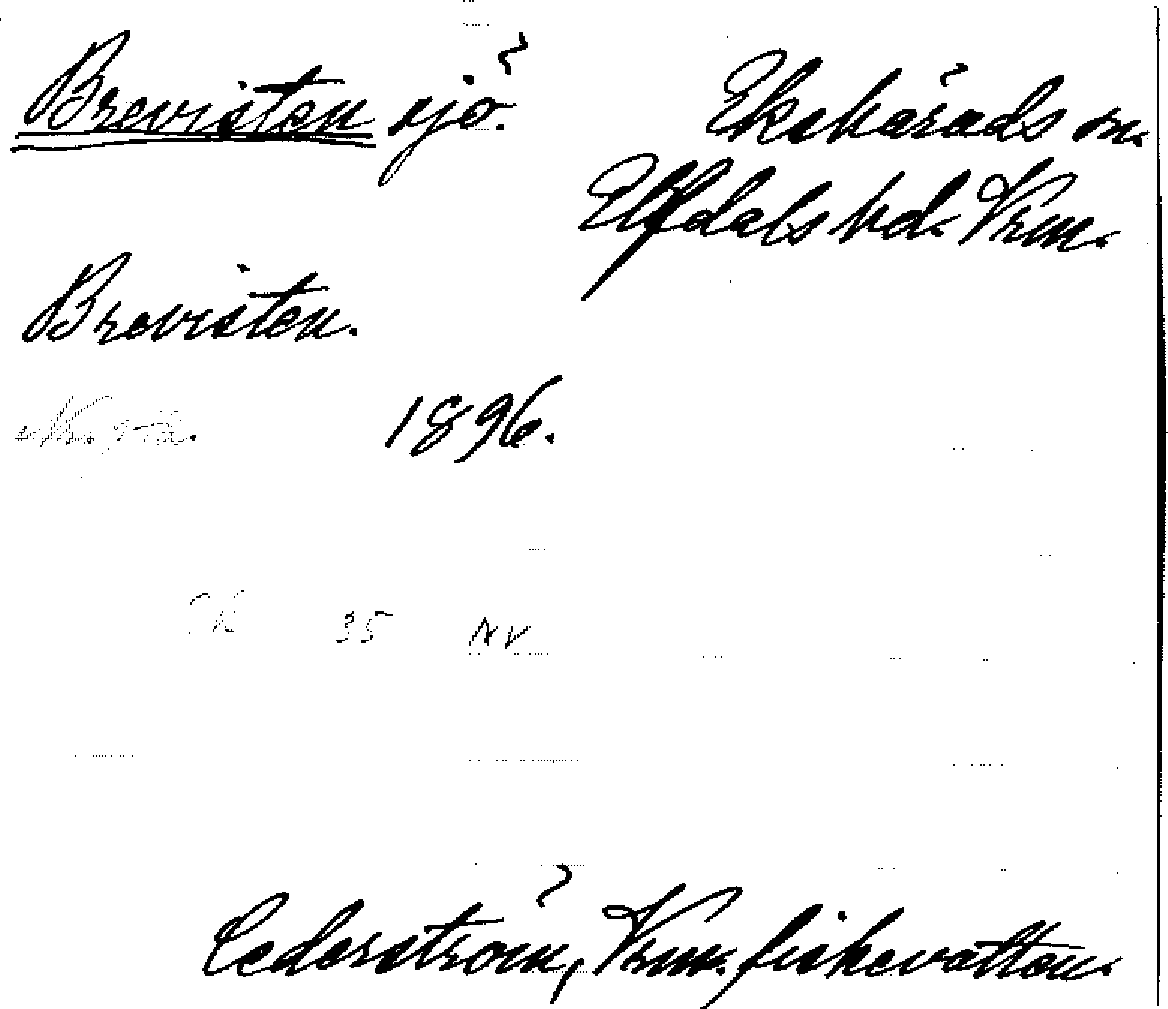 Brevisten sjö.
Ekshärads sn.
Elfdals hd. Vrm.
Brevisten.
1896.
35 NV
Cederström, Vrm. fiskevatten.